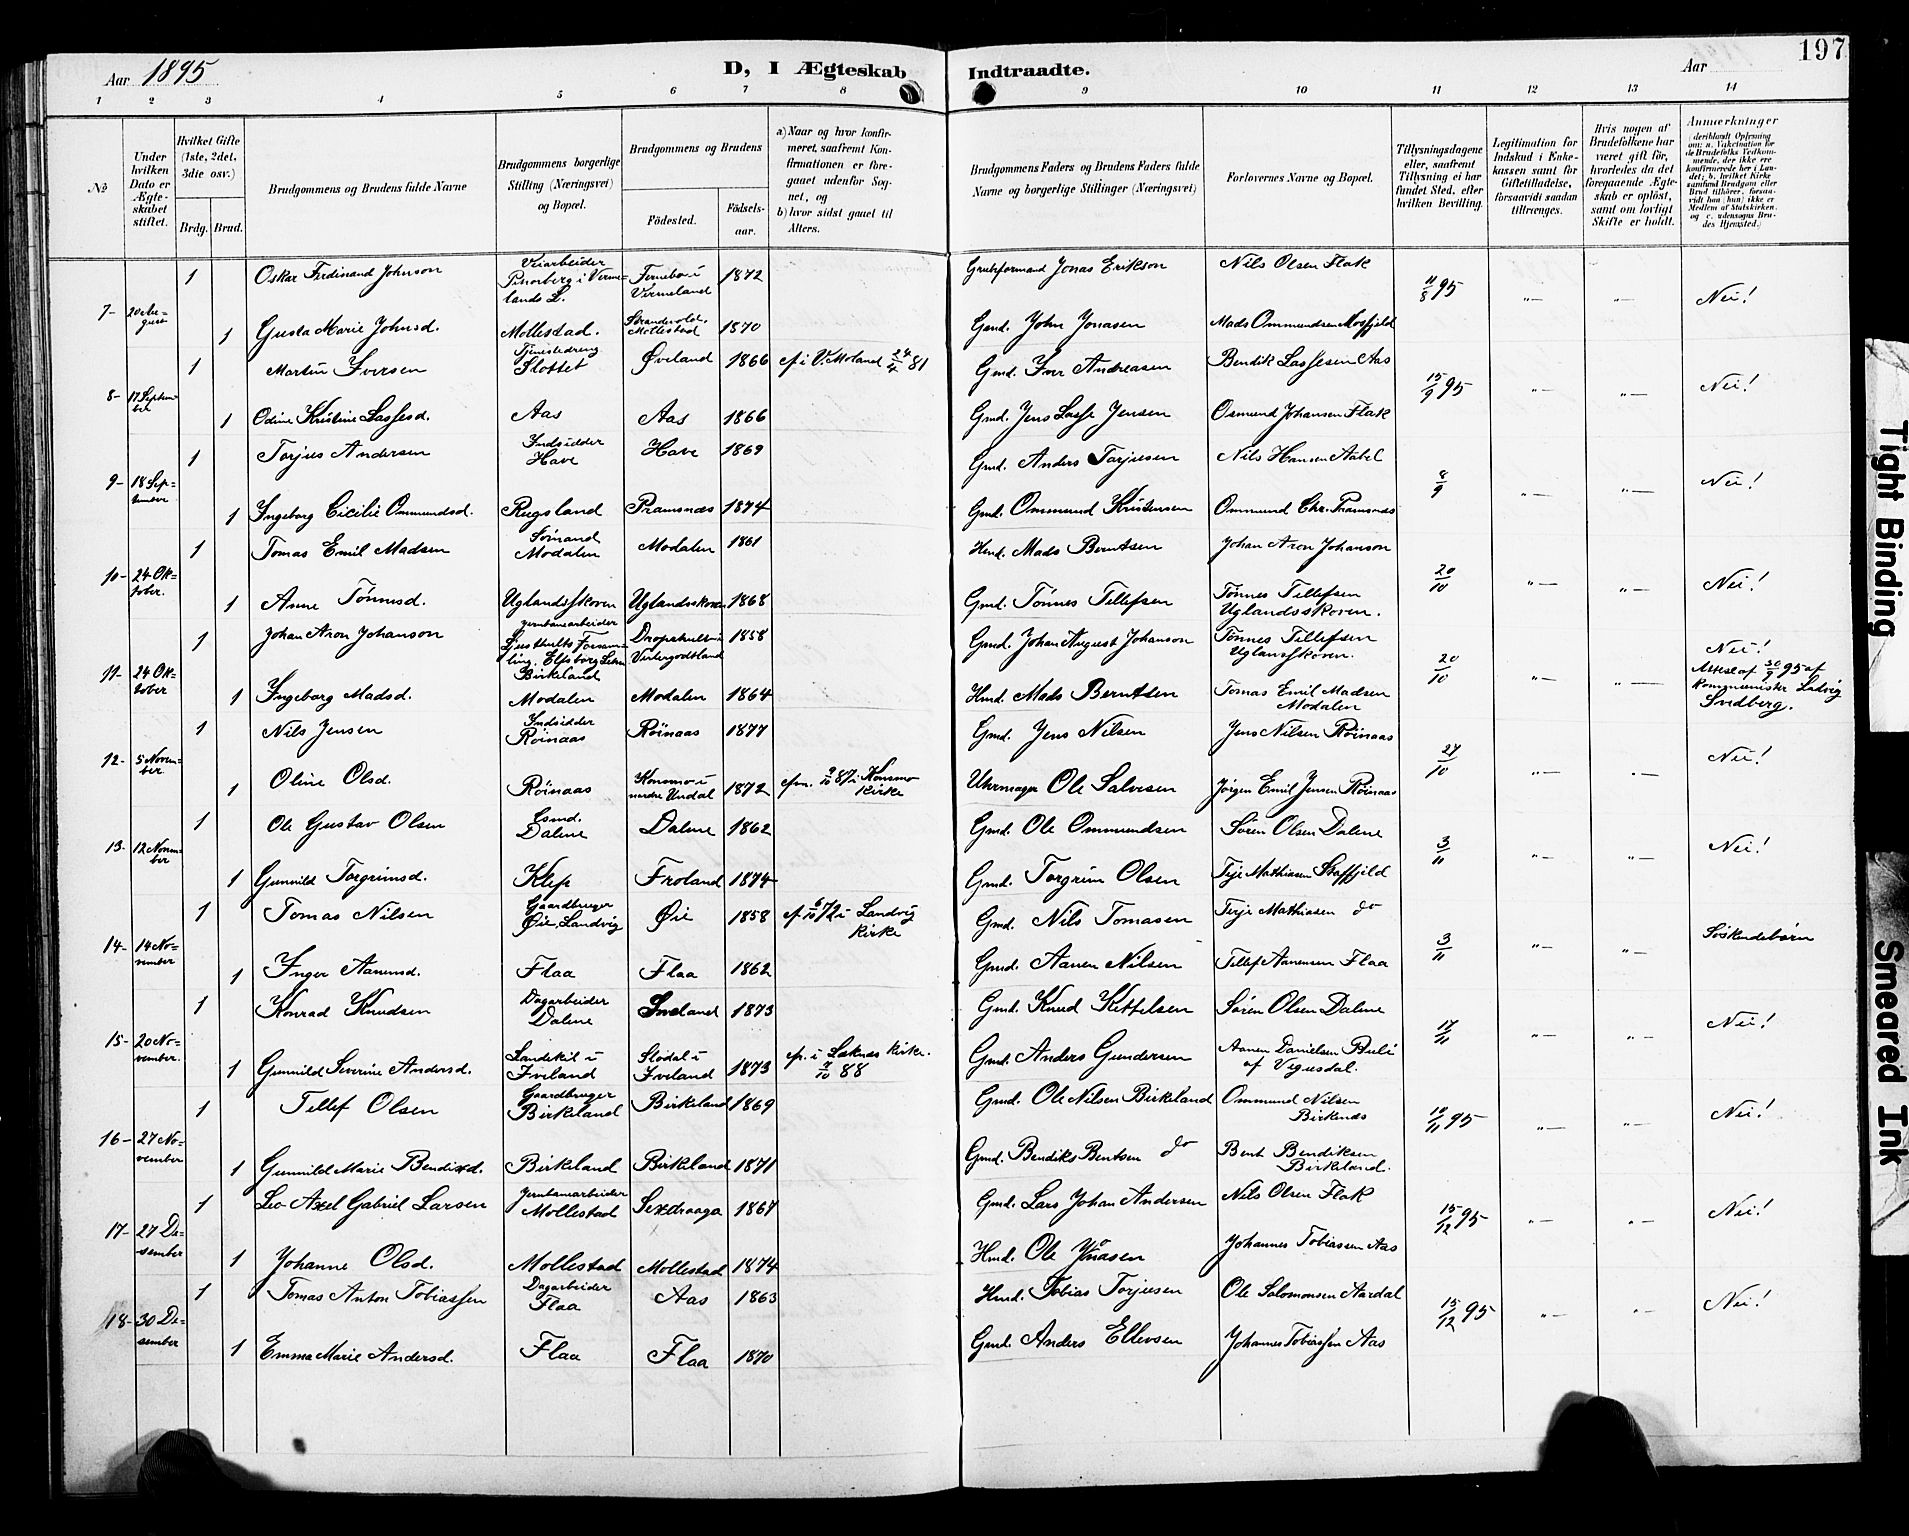 Aar 1895
D, I Ægteskab Indtraadte.
Aar
197
1 2 3 4 5 6 7 8 9 10 11 12 13 14
No
Under hvilken Dato er Ægteskabet stiftet.
Hvilket Gifte (1ste, 2det, 3die osv.)
Brdg. Brud.
Brudgommens og Brudens fulde Navne
Brudgommens borgerlige Stilling (Næringsvei) og Bopæl.
Brudgommens og Brudens
Födested. Födsels-aar.
a) Naar og hvor konfirmeret, saafremt Konfirmationen er foregaaet udenfor Sognet, og
b) hvor sidst gaaet til Alters.
Brudgommens Faders og Brudens Faders fulde Navne og borgerlige Stillinger (Næringsvei)
Forlovernes Navne og Bopæl.
Tillysningsdagene eller, saafremt Tillysning ei har fundet Sted, efter hvilken Bevilling.
Legitimation for Indskud i Enkekassen samt for Giftetilladelse, forsaavidt saadan tiltrænges.
Hvis nogen af Brudefolkene har været gift för, hvorledes da det foregaaende Ægteskab er oplöst, samt om lovligt Skifte er holdt.
Anmærkninger
(deriblandt Oplysning om: a. Vakcination for de Brudefolks Vedkommende, der ikke ere konfirmerede her i Landet; b. hvilket Kirkesamfund Brudgom eller Brud tilhörer, forsaavidt han (hun) ikke er Medlem af Statskirken, og c. udensogns Brudes Hjemsted.)
7- 20 August
1 Oskar Ferdinand Johnson Veiarbeider i Vermelands L. Fernebo i Vermeland 1872 Grubeformand Jonas Erikson Nils Olsen Flak 11/8 95 "— "— Nei!
1 Gusta Marie Johnsd. Mollestad. Strandvold. Mollestad 1870 Gmd. John Jonasen Mads Ommundsen Mosfjeld
8- 17 September
1 Martin Iversen Tjenestedreng Slottet Øveland 1866 cf i V. Moland 24/4 81 Gmd. Iver Andreasen Bendik Lassesen Aas 15/9 95 "— "— Nei!
1 Odine Kristine Lassesd. Aas Aas 1866 Gmd. Jens Lasse Jensen Osmund Johansen Flak
9- 18 September
1 Torjus Andersen Indsidder Have Have 1869 Gmd. Anders Torjusen Nils Hansen Aabel 8/9 "— "— Nei!
1 Ingeborg Cicilie Ommundsd. Rugsland Pramsnæs 1874 Gmd. Ommund Kristensen Ommund Chr. Pramsnæs
10- 24 Oktober.
1 Tomas Emil Madsen Sömand Modalen Modalen 1861 Hmd. Mads Berntsen Johan Aron Johanson 20/10 "— "— Nei!
1 Anne Tønnesd. Uglandsskoven Uglandsskoven 1868 Gmd. Tönnes Tellefsen Tönnes Tellefsen Uglandsskoven.
11- 24 Oktober
1 Johan Aron Johanson Jernbanearbeider Ljushults Forsamling, Elfsborg Lehn Birkeland Vestergodtland 1858 Gmd. Johan August Johanson Tönnes Tellefsen Uglansskoven. 20/10 "— "— Nei!
Attest af 30/9 95 af Kommunister Ludvig Sndberg.
1 Ingeborg Madsd. Modalen Modalen 1864 Hmd. Mads Berntsen Tomas Emil Madsen Modalen
12- 5 November
1 Nils Jensen Indsidder Röinaas Röinaas 1877 Gmd. Jens Nilsen Jens Nilsen Röinaas 27/10 "— "— Nei!
1 Oline Olsd. Röinaas Konsmo i nordre Undal 1872 cfm. 2/10 87 i Konsmo Kirke Uhrmager Ole Salvesen Jörgen Emil Jensen Röinaas
13- 12 November
1 Ole Gustav Olsen Esmd. Dalene Dalene 1862 Gmd. Ole Ommundsen Sören Olsen Dalene 3/11 "— "— Nei!
1 Gunnild Torgrimsd. Klep Froland 1874 Gmd. Torgrim Olsen Terje Mathiasen Staffjeld
14- 14 November
1 Tomas Nilsen Gaardbruger Øie, Landvig Øie 1858 cf 6/10 72 i Landvig Kirke Gmd. Nils Tomasen Terje Mathiasen do 3/11 "— "— Söskendebörn
1 Inger Aanensd. Flaa Flaa 1862 Gmd. Aanen Nilsen Tellef Aanensen Flaa
15- 20 November.
1 Konrad Knudsen Dagarbeider Dalene Iveland 1873 Gmd. Knud Kittelsen Sören Olsen Dalene 17/11 "— "— Nei!
1 Gunnild Severine Andersd. Landekil i Iveland Stodal i Iveland 1873 cf. i Laknes Kirke. 7/10 88 Gmd. Anders Gundersen Aanen Danielsen Buli af Vegusdal.
16- 27 November
1 Tellef Olsen Gaardbruger Birkeland Birkeland 1869 Gmd. Ole Nilsen Birkeland Ommund Nilsen Birkenæs 10/11 95 "— "— Nei!
1 Gunnild Marie Bendixd. Birkeland Birkeland 1871 Gmd. Bendiks Bentsen do Bent Bendiksen Birkeland.
17- 27 Desember
1 Leo Axel Gabriel Larsen Jernbanearbeider Mollestad Sexdraaga 1867 Gmd. Lars Johan Andersen Nils Olsen Flak 15/12 95 "— "— Nei!
1 Johanne Olsd. Mollestad Mollestad 1874 Hmd. Ole Jonasen Johannes Tobiassen Aas
18- 30 Desember
1 Tomas Anton Tobiassen Dagarbeider Flaa Aas 1863 Hmd. Tobias Torjusen Ole Salomonsen Aardal 15/12 95 "— "— Nei!
1 Emma Marie Andersd. Flaa Flaa 1870 Gmd. Anders Ellevsen Johannes Tobiassen Aas
Tight Binding
Smeared Ink